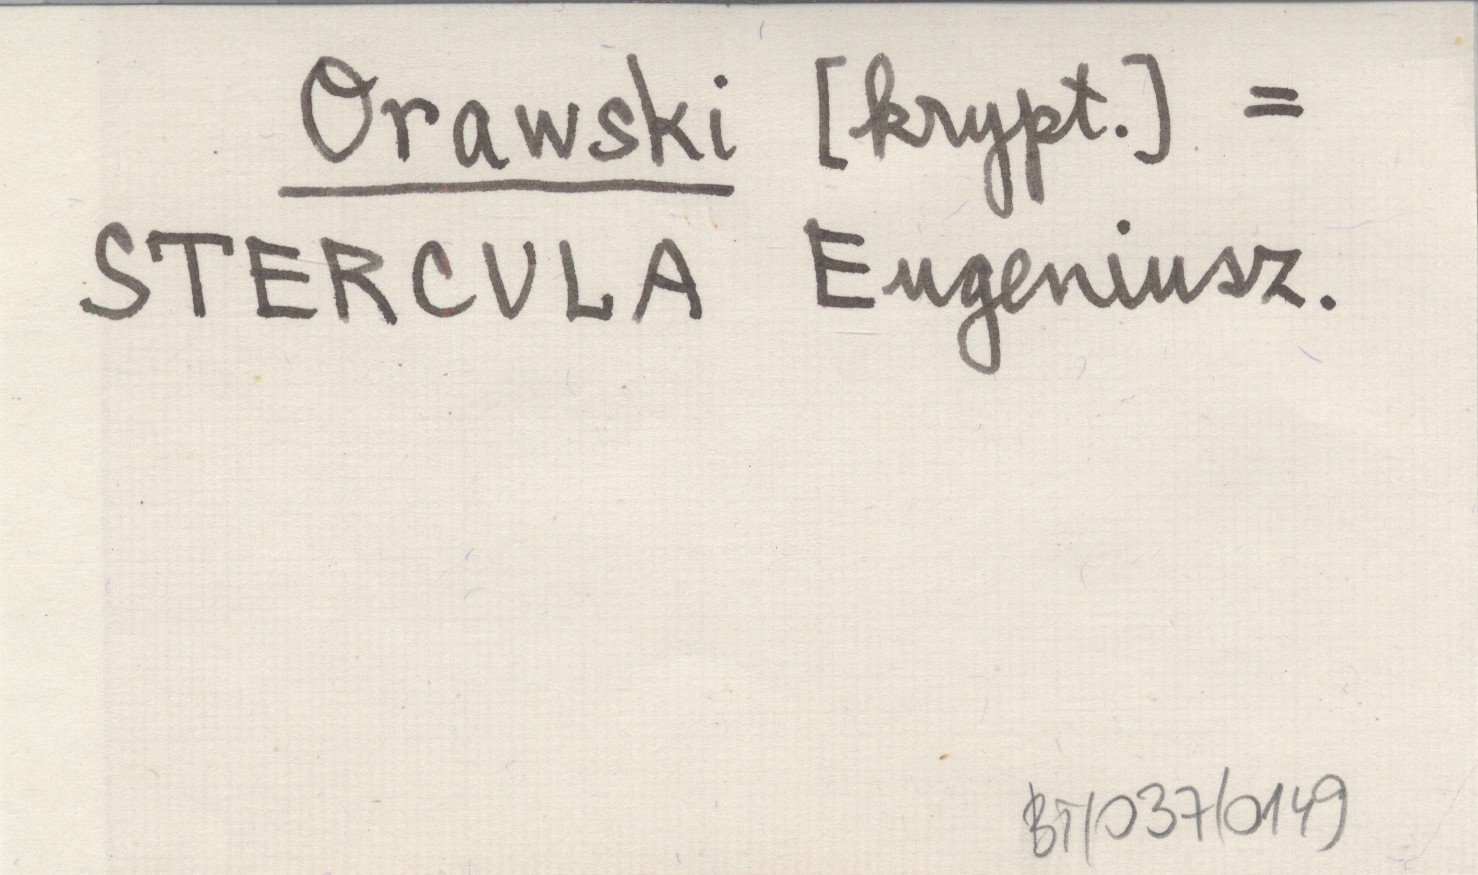 Orawski [krypt.] =
STERCULA Eugeniusz.
BT/037/0149